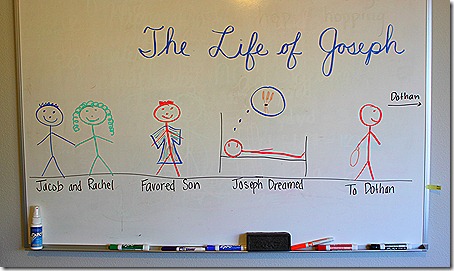 The Life of Joseph
Dothan
!!!
Jacob and Rachel
Favored Son
Joseph Dreamed
To Dothan